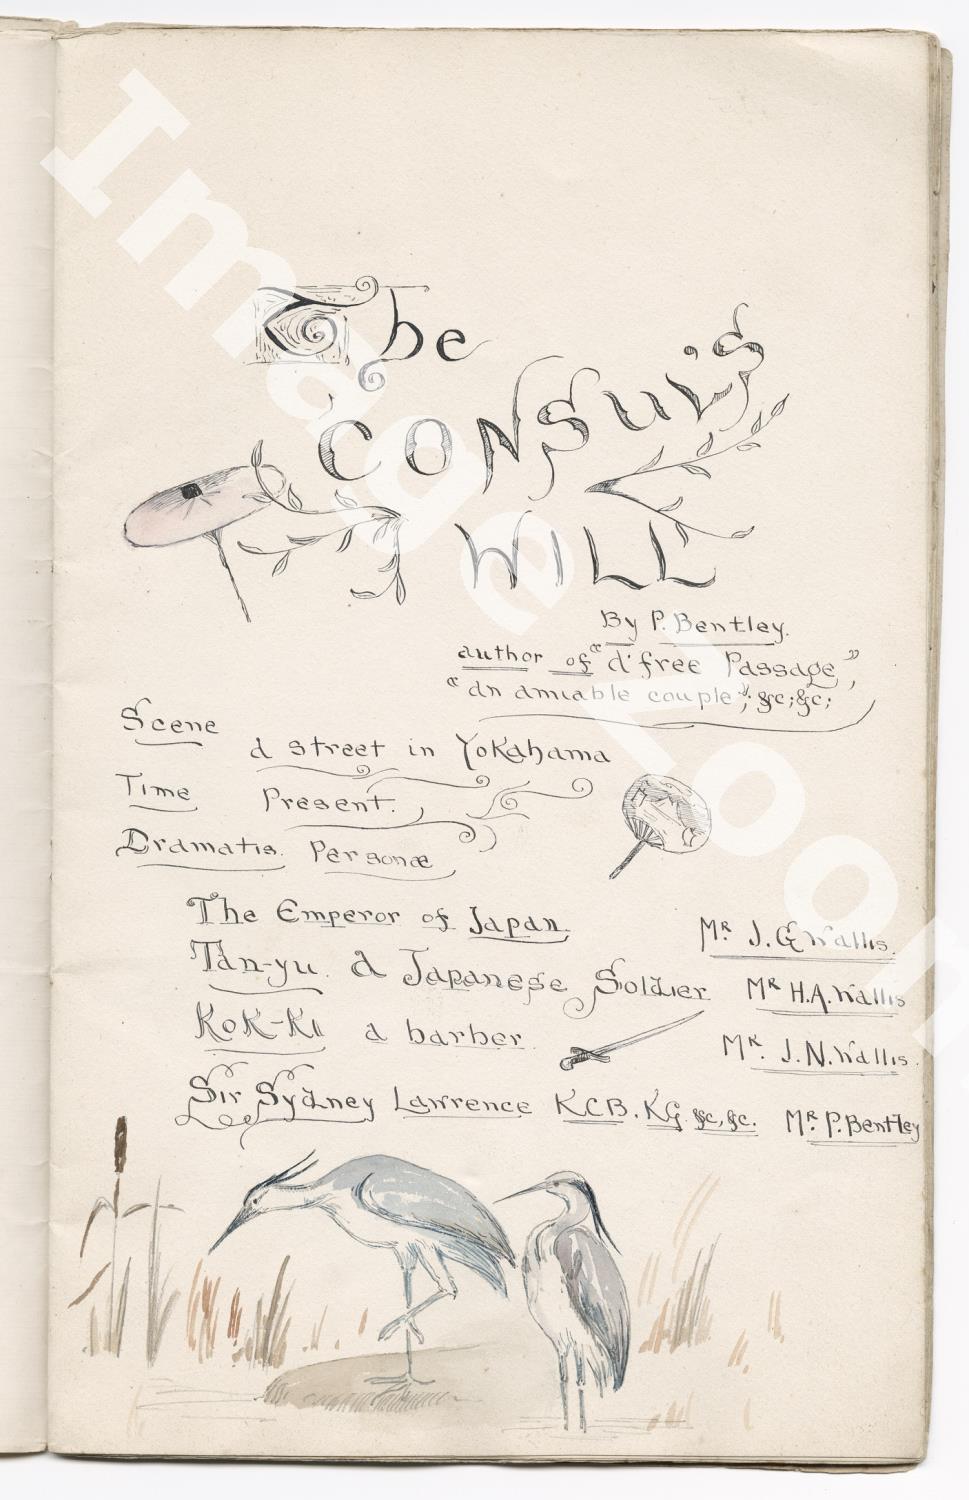 The
CONSUL'S
WILL
By P. Bentley.
author of "A free Passage",
"An amiable couple"; &c; &c;
Scene
A street in Yokahama
Time Present.
Dramatis. Personæ
The Emperor of Japan. Mr J. G. Wallis.
Tan-yu. A Japanese Soldier Mr H.A. Wallis
Kok-Ki a barber. Mr. J.N. Wallis.
Sir Sydney Lawrence K.C.B. KG &c, &c. Mr. P. Bentley
ImageZoom